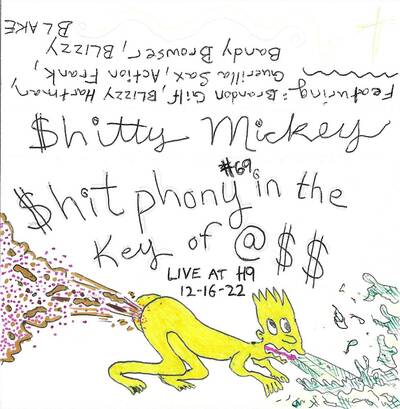 Featuring: Brandon Gilf, Blizzy Hartman,
Guerilla Sax, Action Frank,
Bandy Browser, BLizzy
BLAKE
$hitty Mickey
#69
$hit phony in the
Key of @$$
LIVE AT H9
12-16-22